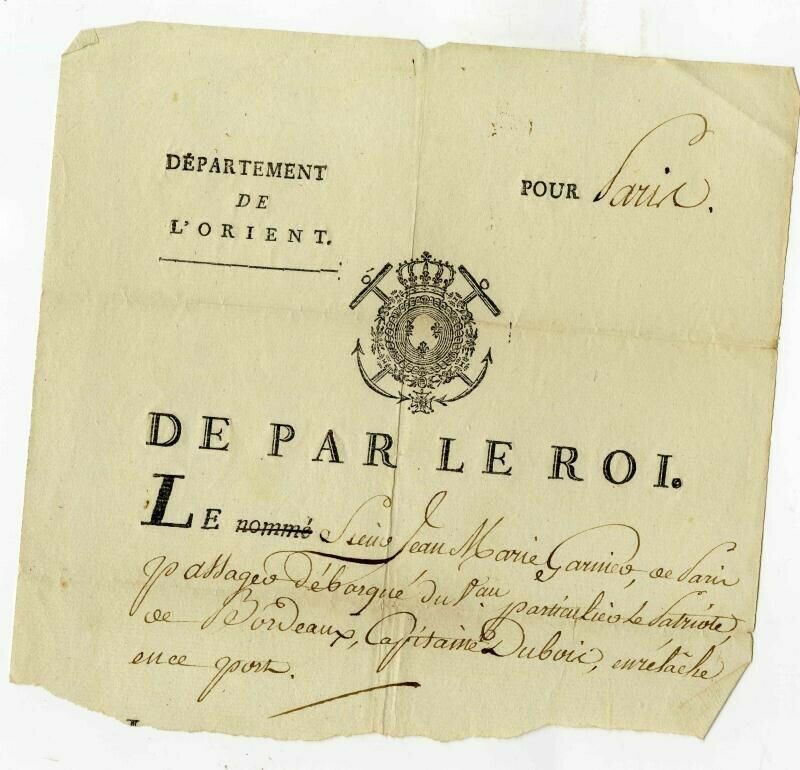 DÉPARTEMENT
DE
L'ORIENT.
POUR Paris.
DE PAR LE ROI.
LE nommé Sieur Jean Marie Garnier, de Paris
passager débarqué du Vau particulier Le Patriote,
de Bordeaux, Capitaine Dubois, en relâche
en ce port.